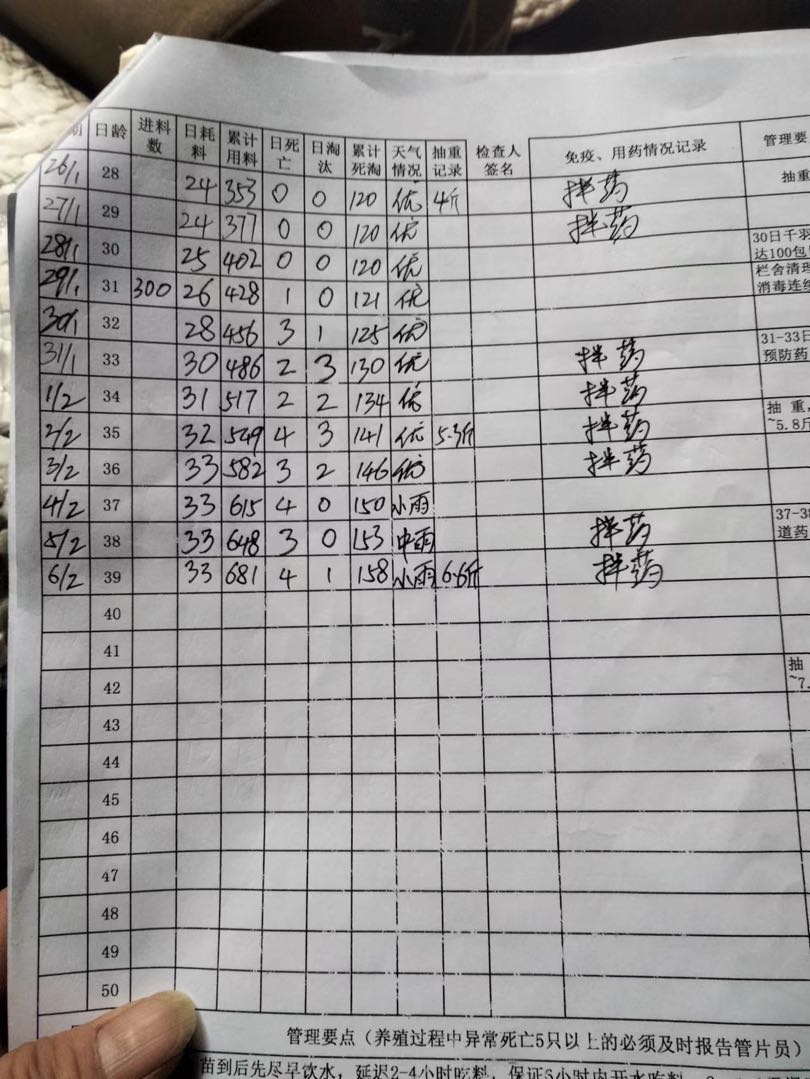 日龄 进料数 日耗料 累计用料 日死亡 日淘汰 累计死淘 天气情况 抽重记录 检查人签名 免疫、用药情况记录 管理要
26/1 28 24 353 0 0 120 优 4斤 拌药 抽重
27/1 29 24 377 0 0 120 优 拌药
28/1 30 25 402 0 0 120 优 30日千羽
达100包
29/1 31 300 26 428 1 0 121 优 栏舍清理
消毒连续
30/1 32 28 456 3 1 125 优
31/1 33 30 486 2 3 130 优 拌药 31-33日
预防药
1/2 34 31 517 2 2 134 优 拌药
2/2 35 32 549 4 3 141 优 5.3斤 拌药 抽重,
~5.8斤
3/2 36 33 582 3 2 146 优 拌药
4/2 37 33 615 4 0 150 小雨
5/2 38 33 648 3 0 153 中雨 拌药 37-38
道药
6/2 39 33 681 4 1 158 小雨 6.6斤 拌药
40
41
42 抽
~7.
43
44
45
46
47
48
49
50
管理要点（养殖过程中异常死亡5只以上的必须及时报告管片员）
苗到后先尽早饮水，延迟2-4小时吃料，保证